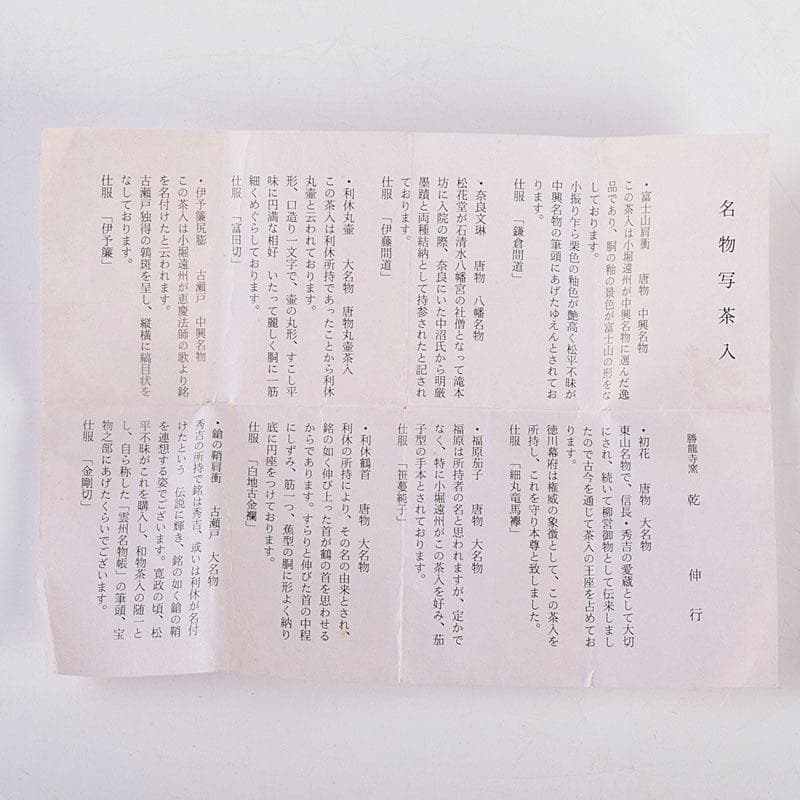 名物写茶入
勝龍寺窯　乾　伸行
・富士山肩衝　唐物　中興名物
この茶入は小堀遠州が中興名物に選んだ逸
品であり、胴の釉の景色が富士山の形をな
しております。
小振り乍ら栗色の釉色が艶高く松平不昧が
中興名物の筆頭にあげたゆえんとされてお
ります。
仕服　「鎌倉間道」
・奈良文琳　唐物　八幡名物
松花堂が石清水八幡宮の社僧となって滝本
坊に入院の際、奈良にいた中沼氏から明厳
墨蹟と両種結納として持参されたと記され
ております。
仕服　「伊藤間道」
・利休丸壷　大名物　唐物丸壷茶入
この茶入は利休所持であったことから利休
丸壷と云われております。
形、口造り一文字で、壷の丸形、すこし平
味に円満な相好　いたって麗しく胴に一筋
細くめぐらしております。
仕服　「富田切」
・伊予簾尻膨　古瀬戸　中興名物
この茶入は小堀遠州が恵慶法師の歌より銘
を名付けたと云われます。
古瀬戸独得の鶉斑を呈し、縦横に縞目状を
なしております。
仕服　「伊予簾」
・初花　唐物　大名物
東山名物で、信長・秀吉の愛蔵として大切
にされ、続いて柳営御物として伝来しまし
たので古今を通じて茶入の王座を占めてお
ります。
徳川幕府は権威の象徴として、この茶入を
所持し、これを守り本尊と致しました。
仕服　「細丸竜馬襷」
・福原茄子　唐物　大名物
福原は所持者の名と思われますが、定かで
なく、特に小堀遠州がこの茶入を好み、茄
子型の手本とされております。
仕服　「笹蔓純子」
・利休鶴首　唐物　大名物
利休の所持により、その名の由来とされ、
銘の如く伸び上った首が鶴の首を思わせる
からであります。すらりと伸びた首の中程
にしずみ、筋一つ、蕉型の胴に形よく納り
底に円座をつけております。
仕服　「白地古金襴」
・鎗の鞘肩衝　古瀬戸　大名物
秀吉の所持で銘は秀吉、或いは利休が名付
けたという　伝説に輝き、銘の如く鎗の鞘
を連想する姿でございます。寛政の頃、松
平不昧がこれを購入し、和物茶入の随一と
し、自ら称した「雲州名物帳」の筆頭、宝
物之部にあげたくらいでございます。
仕服　「金剛切」